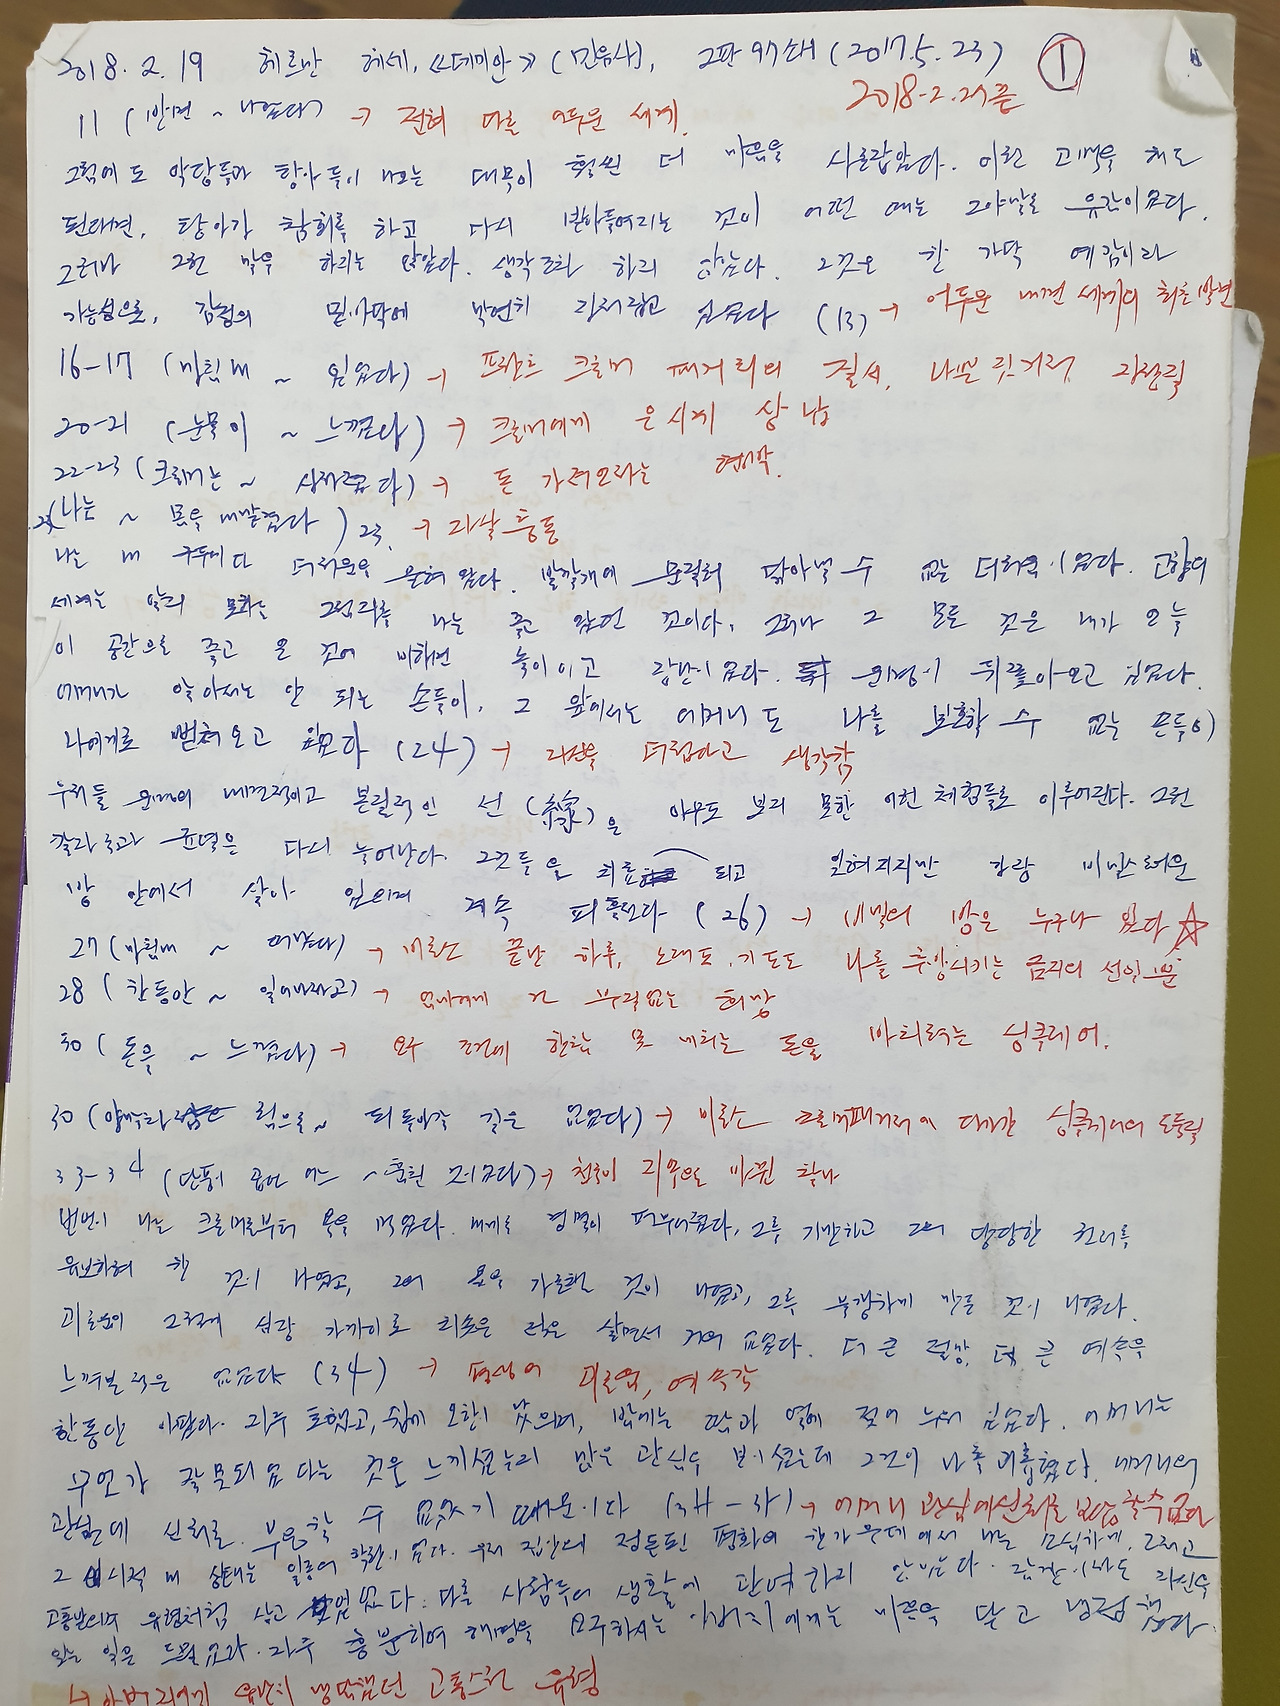 2018. 2. 19 헤르만 헤세, <<데미안>> (민음사), 2판 97쇄 (2017. 5. 23) ①
2018. 2.
11 (반면 ~ 나왔다) → 전혀 다른 어두운 세계.
그럼에도 악당들과 탕아들이 나오는 대목이 훨씬 더 마음을 사로잡았다. 이런 고백을 해도
된다면, 탕아가 참회를 하고 다시 받아들여지는 것이 어떤 때는 그야말로 유감이었다.
그러나 그런 말을 하지는 않았다. 생각조차 하지 않았다. 그것은 한 가닥 예감이라
가능성으로, 감정의 밑바닥에 막연히 깔려 있었다 (13) → 어두운 내면 세계의 최초 발견
16-17 (마침내 ~ 있었다) → 프란츠 크로머 패거리의 질서, 나쁜 짓거리
20-21 (눈물이 ~ 느꼈다) → 크로머에게 은시계 상납
22-23 (크로머는 ~ 사라졌다) → 돈 가져오라는 협박.
(나는 ~ 몸을 내맡겼다) 23. → 자살 충동
나는 내 구두에다 더러움을 묻혀 왔다. 발깔개에 문질러 닦아낼 수 없는 더러움이었다. 고향의
세계는 알지 못하는 그림자를 나는 끌고 왔던 것이다. 그러나 그 모든 것은 내가 오늘
이 공간으로 끌고 온 것에 비하면 놀이이고 장난이었다. 운명이 뒤쫓아오고 있었다.
어머니가 알아서는 안 되는 손들이, 그 앞에서는 어머니도 나를 보호할 수 없는 손들이
나에게로 뻗쳐오고 있었다 (24) → 자신을 더럽다고 생각함
우리들 운명의 내면적이고 본질적인 선(線)은 아무도 보지 못한 이런 체험들로 이루어진다. 그런
칼자국과 균열은 다시 늘어난다. 그것들은 치료되고 잊혀지지만 가장 비밀스러운
방 안에서 살아 있으며 계속 피 흘린다 (26) → 비밀의 방은 누구나 있다 ☆
27 (마침내 ~ 떠났다) → 비로소 끝난 하루, 노래도, 기도도 나를 추방시키는 금지의 선일 뿐
28 (한동안 ~ 일어나라고) → 엄마에게 건 부질없는 희망
30 (돈을 ~ 느꼈다) → 돈을 바치려는 싱클레어.
30 (양박자적으로 ~ 되돌아갈 길은 없었다) → 비로소 크로머 패거리에 다가간 싱클레어의 도둑질
33-34 (단풍이 ~ 졌었다) → 천국이 지옥으로 바뀐 찰나
번번이 나는 크로머로부터 욕을 먹었다. 내게로 경멸이 퍼부어졌다, 그를 기만하고 그의 당당한 권리를
유보하려 한 것이 나였고, 그의 몫을 가로챈 것이 나였고, 그를 불행하게 만든 것이 나였다.
괴로움이 그렇게 심장 가까이로 치솟은 적은 살면서 거의 없었다. 더 큰 절망, 더 큰 예속을
느껴본 적은 없었다 (34) → 평생의 괴로움, 예속감
한동안 아팠다. 자주 토했고, 쉽게 오한이 났으며, 밤에는 땀과 열에 젖어 누워 있었다. 어머니는
무언가 잘못되었다는 것을 느끼셨는지 많은 관심을 보이셨는데 그것이 나를 괴롭혔다. 어머니의
관심에 신뢰로 부응할 수 없었기 때문이다 (34-35) → 어머니 관심에 신뢰로 보답할 수 없어
그 시절 내 상태는 일종의 착란이었다. 우리 집안의 정돈된 평화의 한가운데에서 나는 소심하게, 그리고
고통받으며 유령처럼 살고 있었다. 다른 사람들의 생활에 관여하지 않았다. 잠깐이라도 자신을
잊는 일은 드물었다. 자주 흥분하여 해명을 요구하시는 아버지에게는 마음을 닫고 냉정했다.
↳ 아버지에게 유난히 냉담했던 고통스런 유령